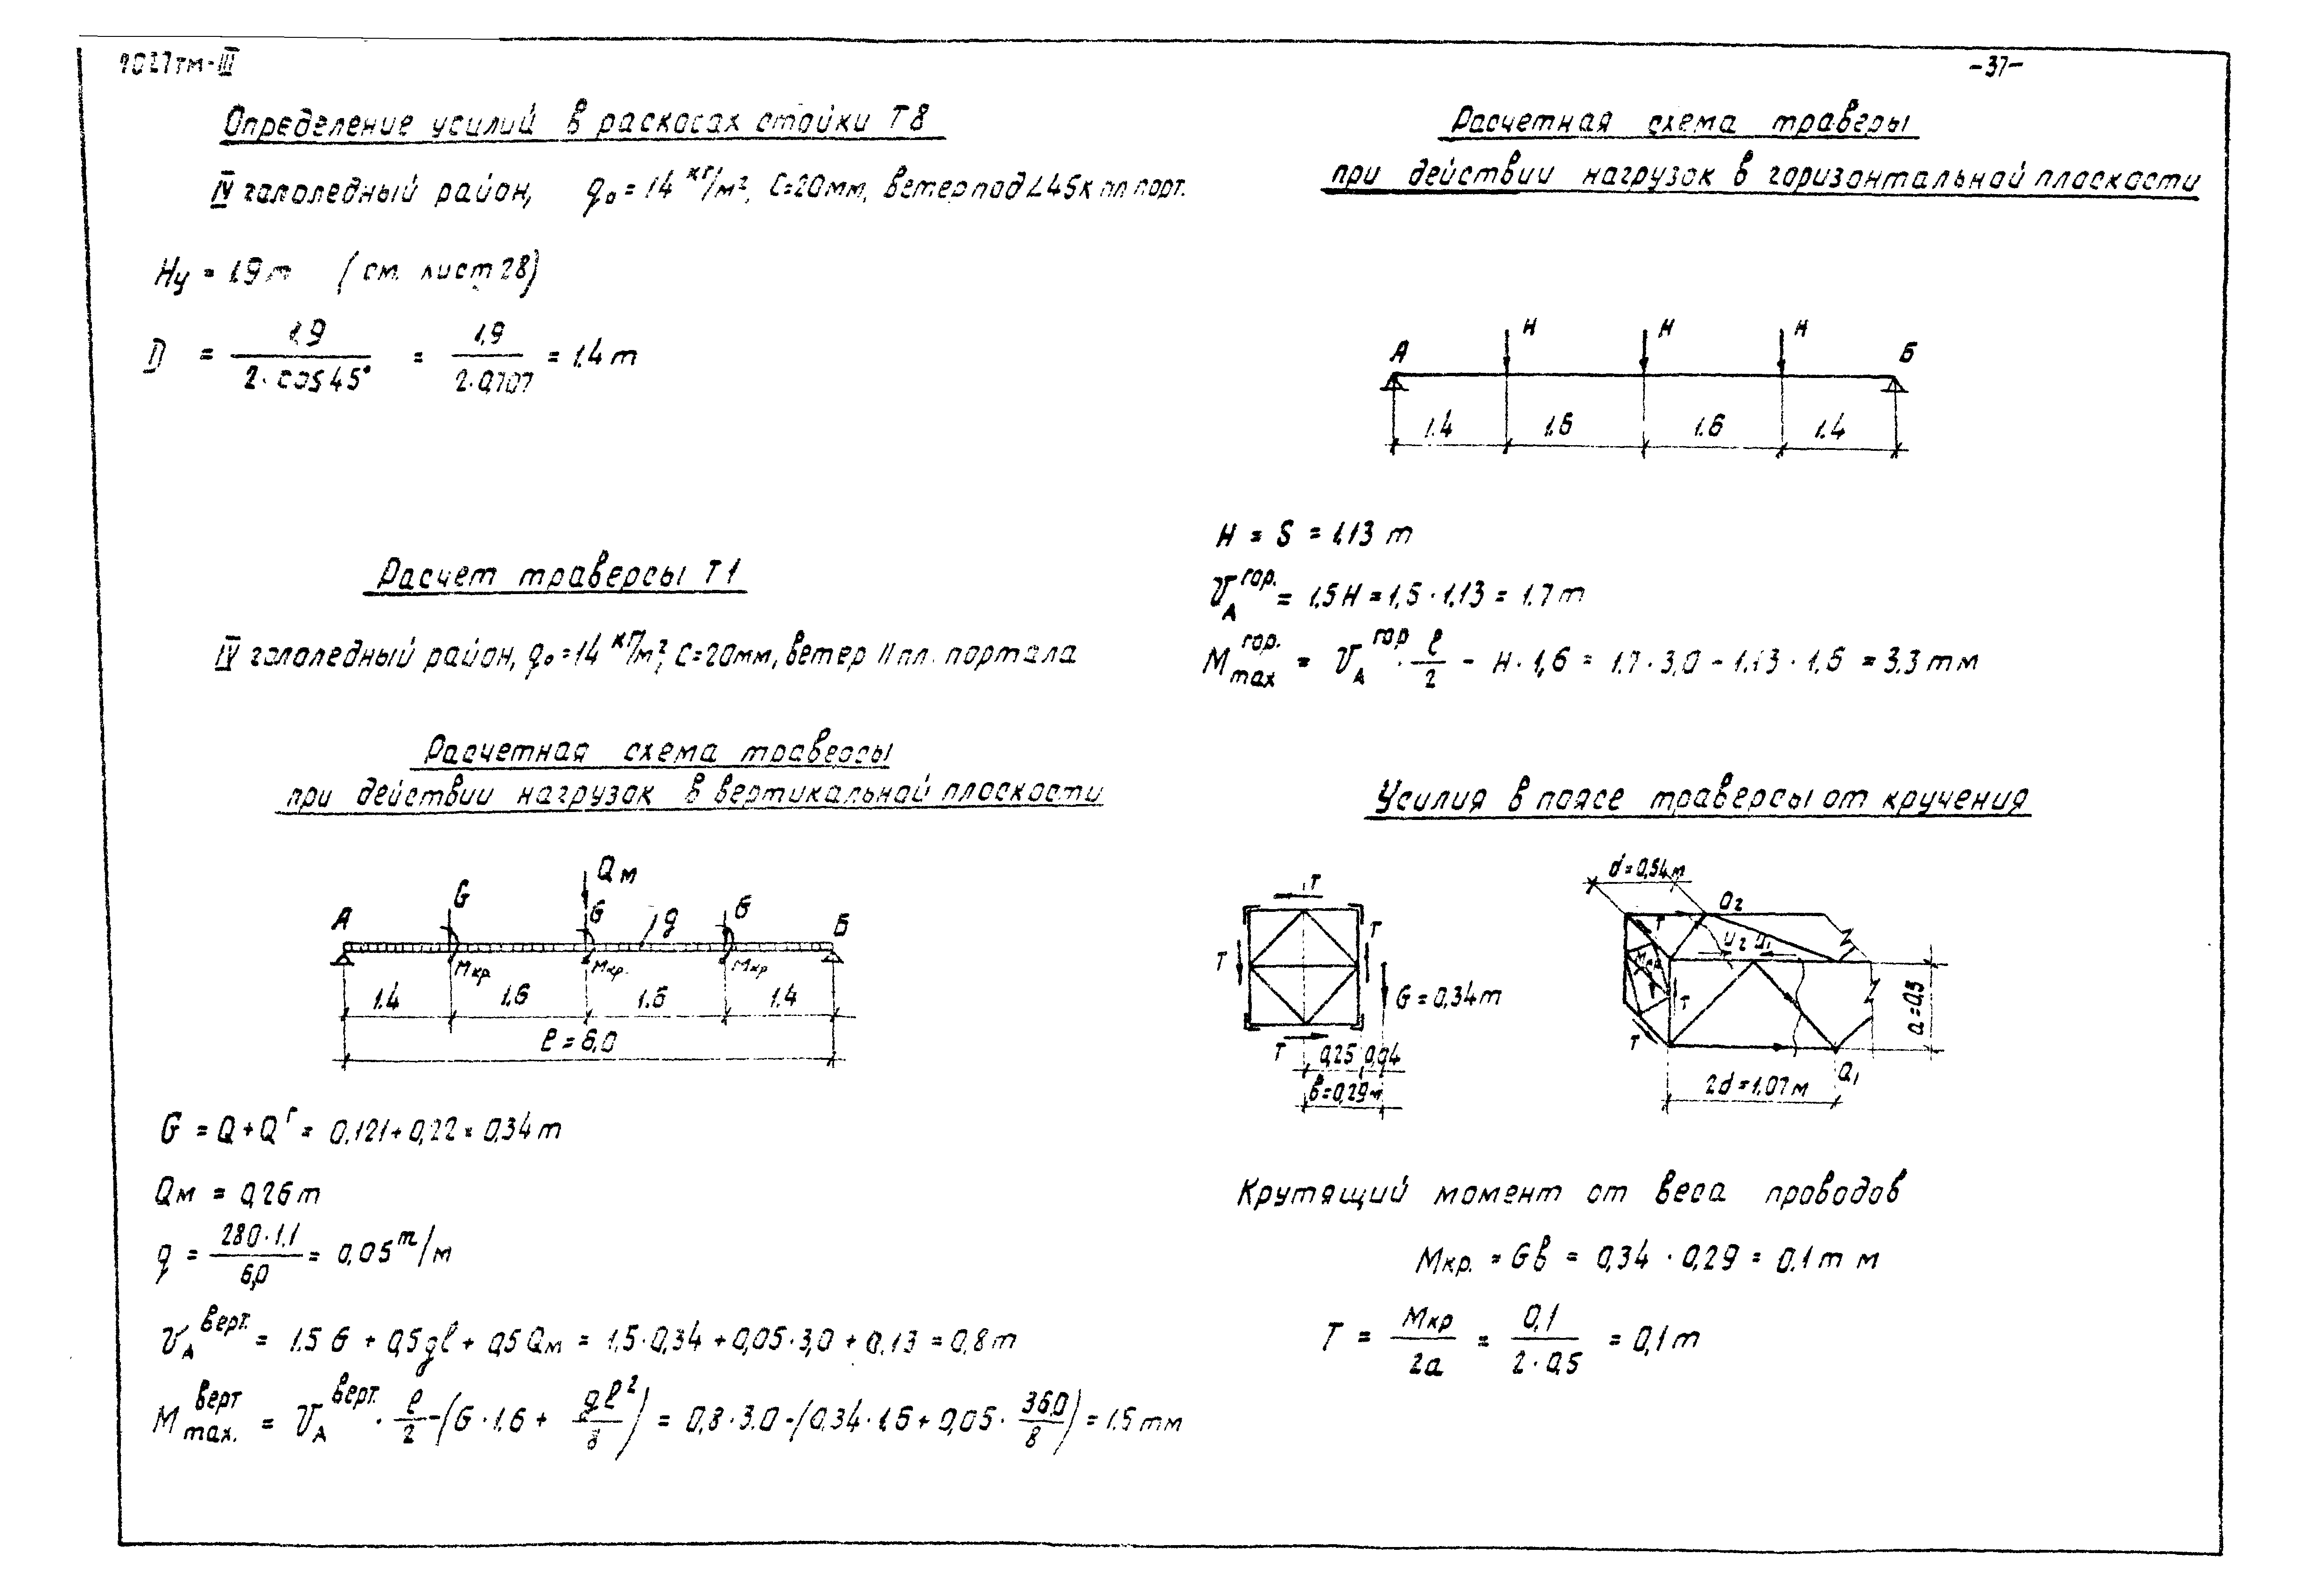 9027тм-III
-37-
Определение усилий в раскосах стойки Т8
IV гололедный район, q₀ = 14 кг/м², С=20мм, ветер под ∠45 к пл порт.
Hу = 1.9 т (см. лист 28)
D = 1,9 / 2·cos45° = 1,9 / 2·0,707 = 1.4 т
Расчет траверсы Т1
IV гололедный район, q₀ = 14 кг/м², С=20мм, ветер II пл. портала
Расчетная схема траверсы
при действии нагрузок в вертикальной плоскости
Qм
G G q G
А Б
Мкр. Мкр. Мкр
1.4 1.6 1.6 1.4
ℓ = 6,0
G = Q + Qᴦ = 0,121 + 0,22 = 0,34 т
Qм = 0,26 т
q = 280·1.1 / 6,0 = 0,05 т/м
V_A верт. = 1.5 G + 0,5qℓ + 0,5 Qм = 1,5·0,34 + 0,05·3,0 + 0,13 = 0,8 т
M max. верт = V_A верт. · ℓ/2 - (G·1.6 + qℓ²/8) = 0,8·3.0 - (0,34·1.6 + 0,05· 36.0/8) = 1.5 тм
Расчетная схема траверы
при действии нагрузок в горизонтальной плоскости
H H H
А Б
1.4 1.6 1.6 1.4
H = S = 1,13 т
V_A гор. = 1.5 H = 1,5 · 1.13 = 1.7 т
M max гор. = V_A гор · ℓ/2 - H·1,6 = 1.7·3,0 - 1.13·1,6 = 3.3 тм
Усилия в поясе траверсы от кручения
Т
Т Т
G = 0,34 т
Т
0,25 0,04
в=0,29м
d = 0,54 м
O₂
Т
U₂ U₁
Мкр
Т
Т
а=0,5
O₁
2d = 1.07 м
Крутящий момент от веса проводов
Мкр. = Gв = 0,34 · 0,29 = 0.1 т м
Т = Мкр / 2а = 0,1 / 2·0,5 = 0,1 т